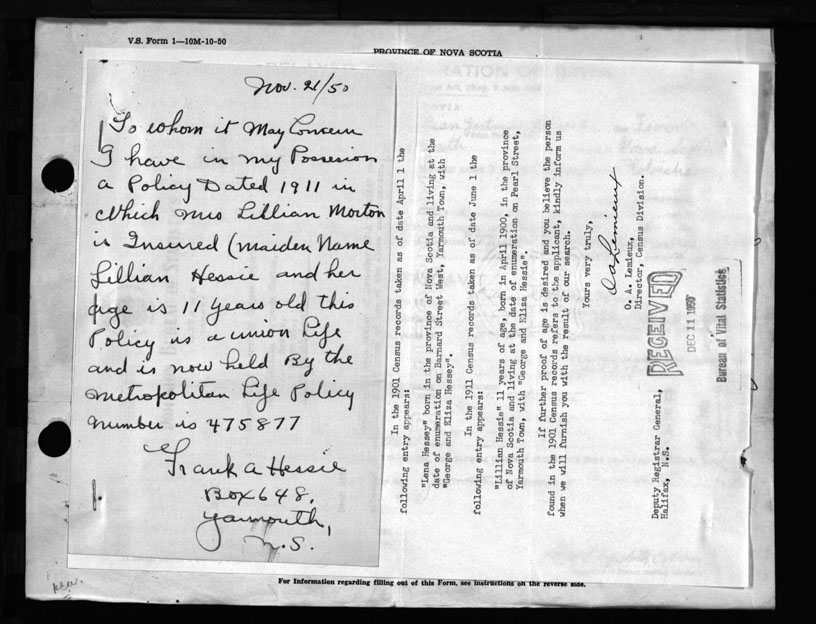 V.S. Form 1—10M-10-50
PROVINCE OF NOVA SCOTIA
Nov. 21/50
To whom it May Concern
I have in my Possesion
a Policy Dated 1911 in
Which Mrs Lillian Morton
is Insured (maiden Name
Lillian Hessie and her
age is 11 years old this
Policy is a union Life
and is now held By the
Metropolitan Life Policy
Number is 475877
Frank A Hessie
Box 648,
Yarmouth,
N.S.
In the 1901 Census records taken as of date April 1 the
following entry appears:
"Lena Hessey" born in the province of Nova Scotia and living at the
date of enumeration on Barnard Street West, Yarmouth Town, with
"George and Eliza Hessey".
In the 1911 Census records taken as of date June 1 the
following entry appears:
"Lillian Hessie" 11 years of age, born in April 1900, in the province
of Nova Scotia and living at the date of enumeration on Pearl Street,
Yarmouth Town, with "George and Eliza Hessie".
If further proof of age is desired and you believe the person
found in the 1901 Census records refers to the applicant, kindly inform us
when we will furnish you with the result of our search.
Yours very truly,
O A Lemieux
O. A. Lemieux,
Director, Census Division.
RECEIVED
DEC 11 1950
Bureau of Vital Statistics
Deputy Registrar General,
Halifax, N.S.
For Information regarding filling out of this Form, see instructions on the reverse side.